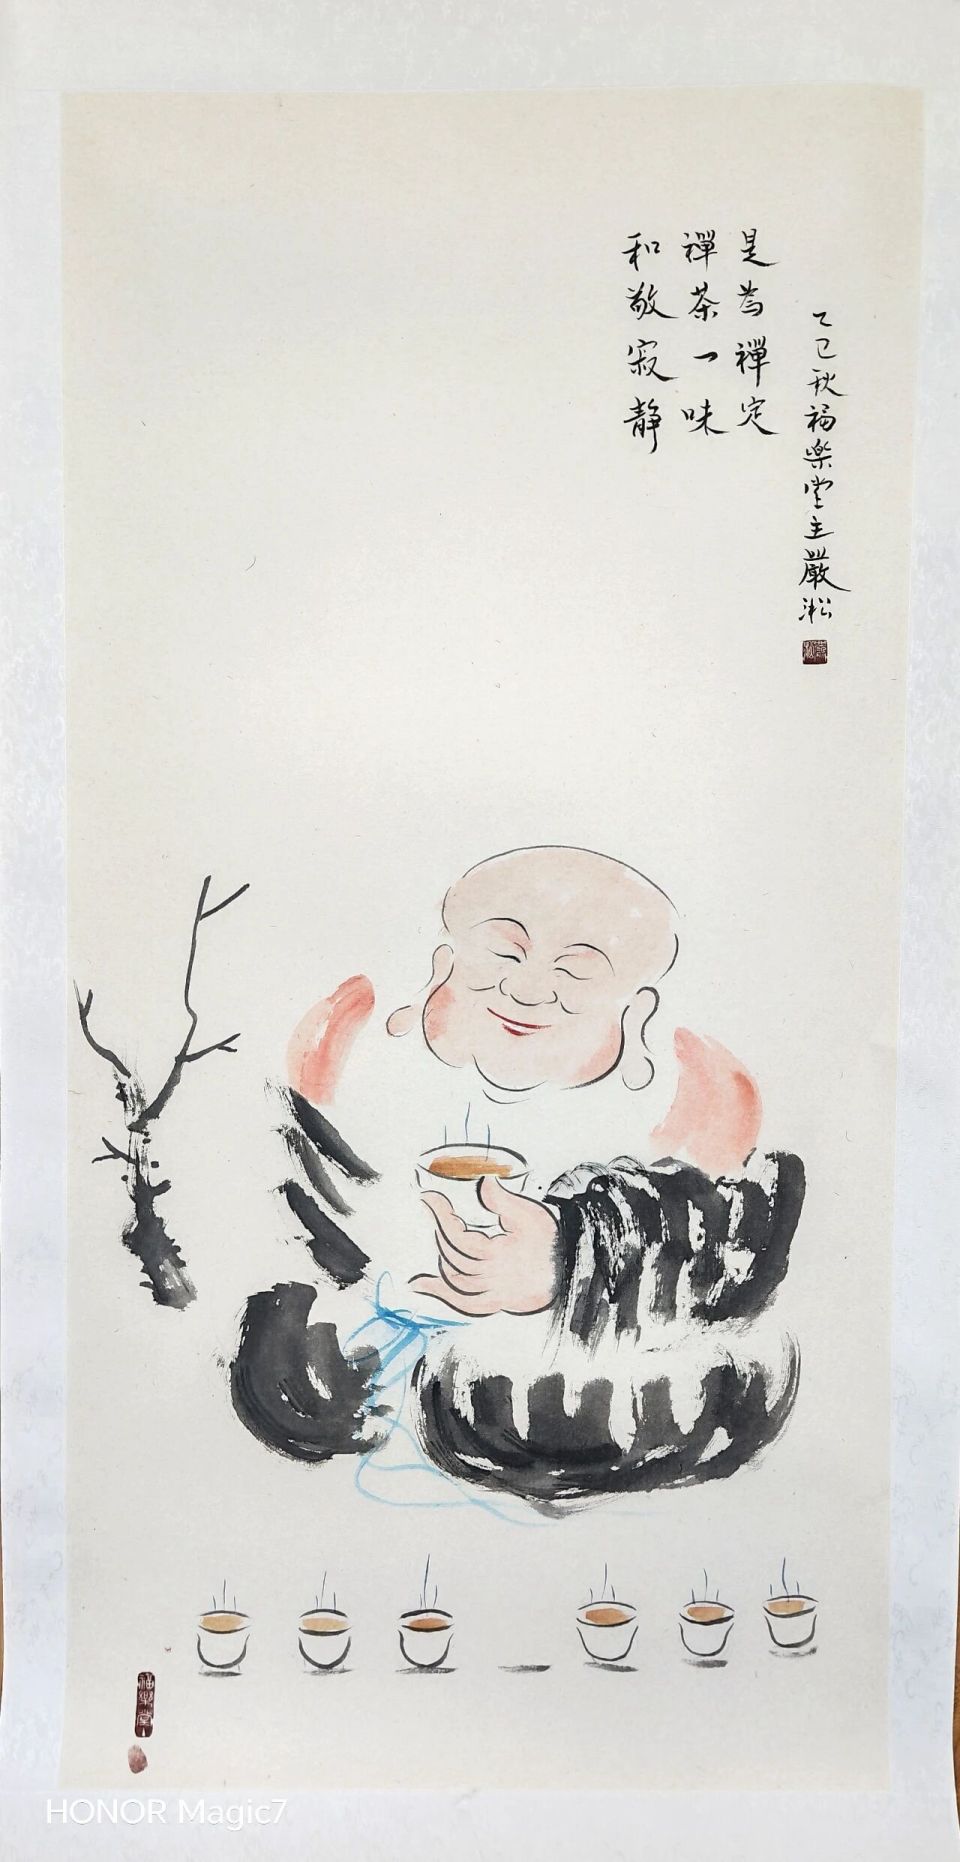 和敬寂静
禪茶一味
是為禪定
乙巳秋福楽堂主嚴淞
福樂堂主
HONOR Magic7